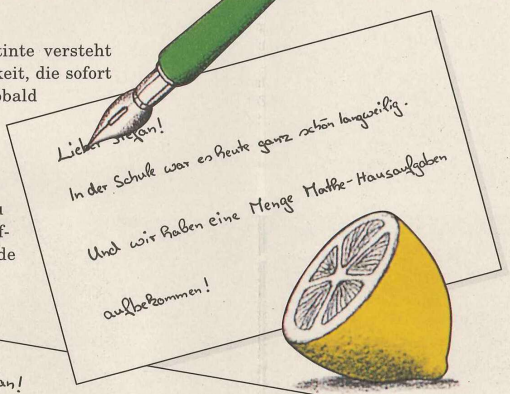 tinte versteht
keit, die sofort
bald
Lieber Stefan!
In der Schule war es heute ganz schön langweilig.
Und wir haben eine Menge Mathe-Hausaufgaben
aufbekommen!
f-
de
an!